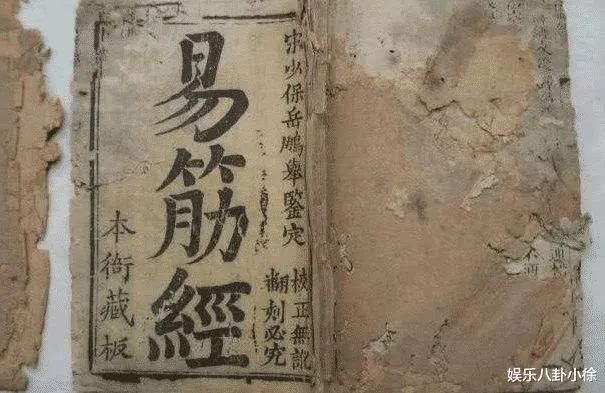 宋少保岳鵬舉鑒定
校正無訛
翻刻必究
易筋經
本衙藏板
娱乐八卦小徐